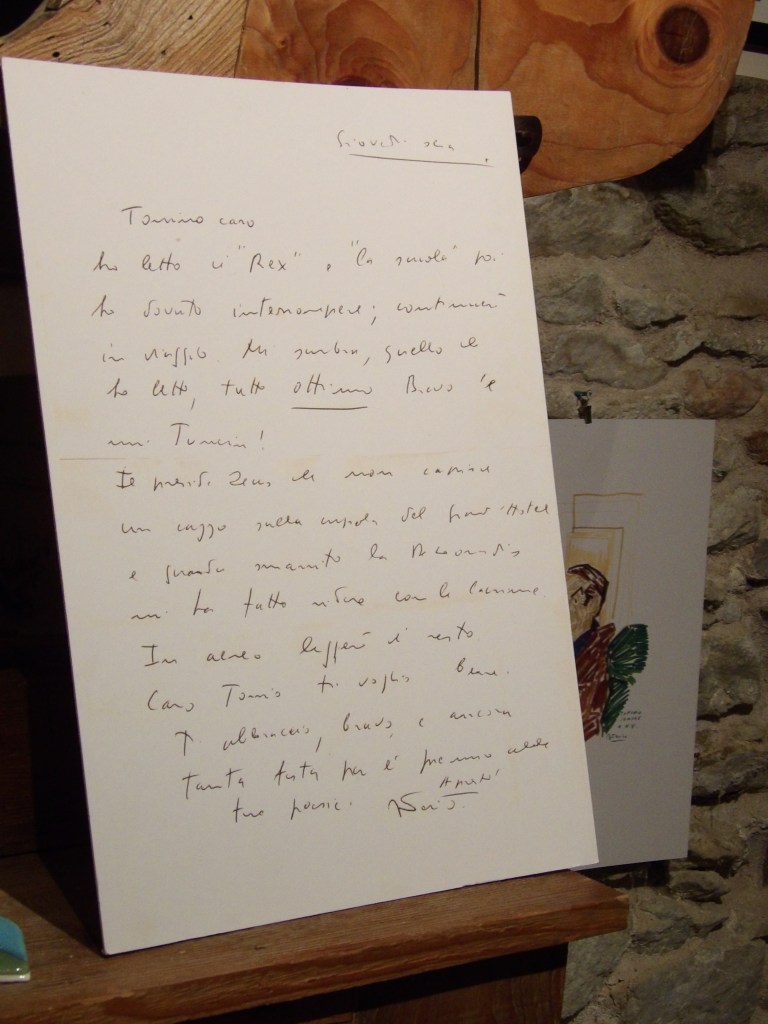 Giovedì sera
Tonino caro
ho letto il "Rex" e "la scuola" poi
ho dovuto interrompere; continuerò
in viaggio. Mi sembra, quello che
ho letto, tutto ottimo Bravo
Tonin!
Il preside Zeus che non capisce
un cazzo sulla cupola del grand'Hotel
e quando smarrito la
mi ha fatto ridere con le lacrime.
In aereo leggerò il resto.
Caro Tonino ti voglio bene.
Ti abbraccio, bravo, e ancora
tanta festa per il premio alle
tue poesie.